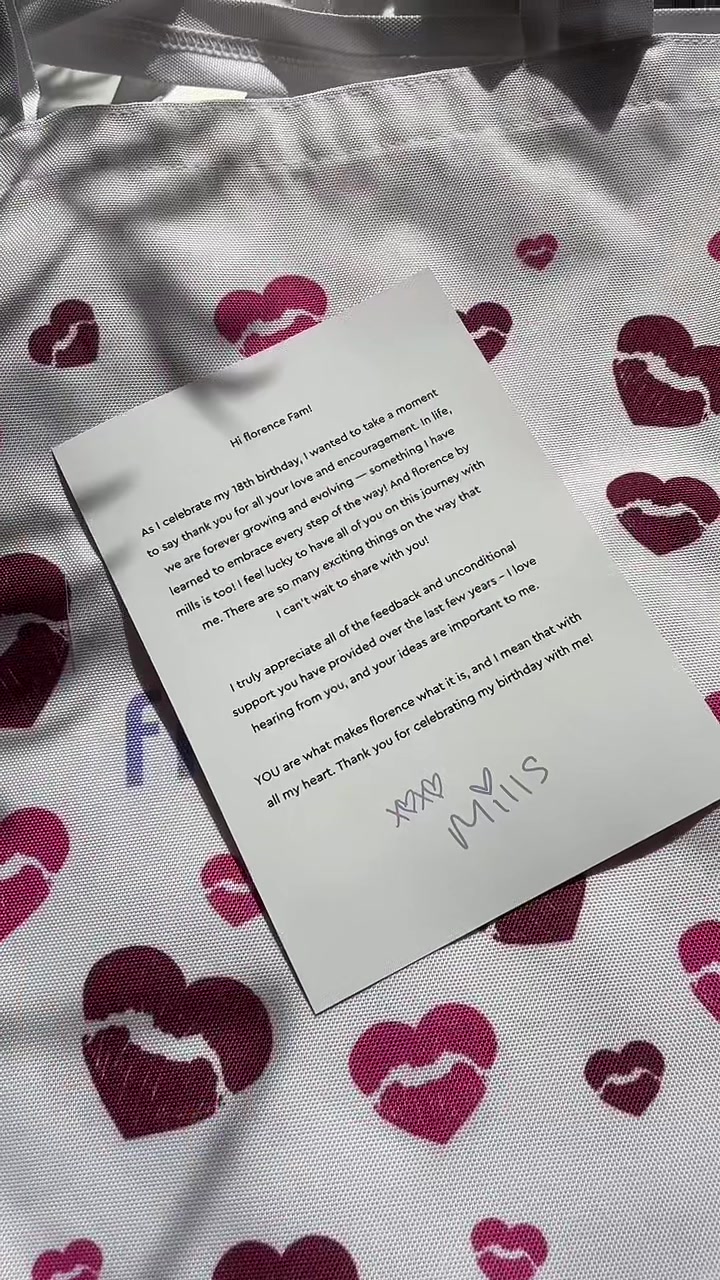 Hi florence Fam!
As I celebrate my 18th birthday, I wanted to take a moment
to say thank you for all your love and encouragement. In life,
we are forever growing and evolving — something I have
learned to embrace every step of the way! And florence by
mills is too! I feel lucky to have all of you on this journey with
me. There are so many exciting things on the way that
I can't wait to share with you!
I truly appreciate all of the feedback and unconditional
support you have provided over the last few years – I love
hearing from you, and your ideas are important to me.
YOU are what makes florence what it is, and I mean that with
all my heart. Thank you for celebrating my birthday with me!
x♡x♡
Mills